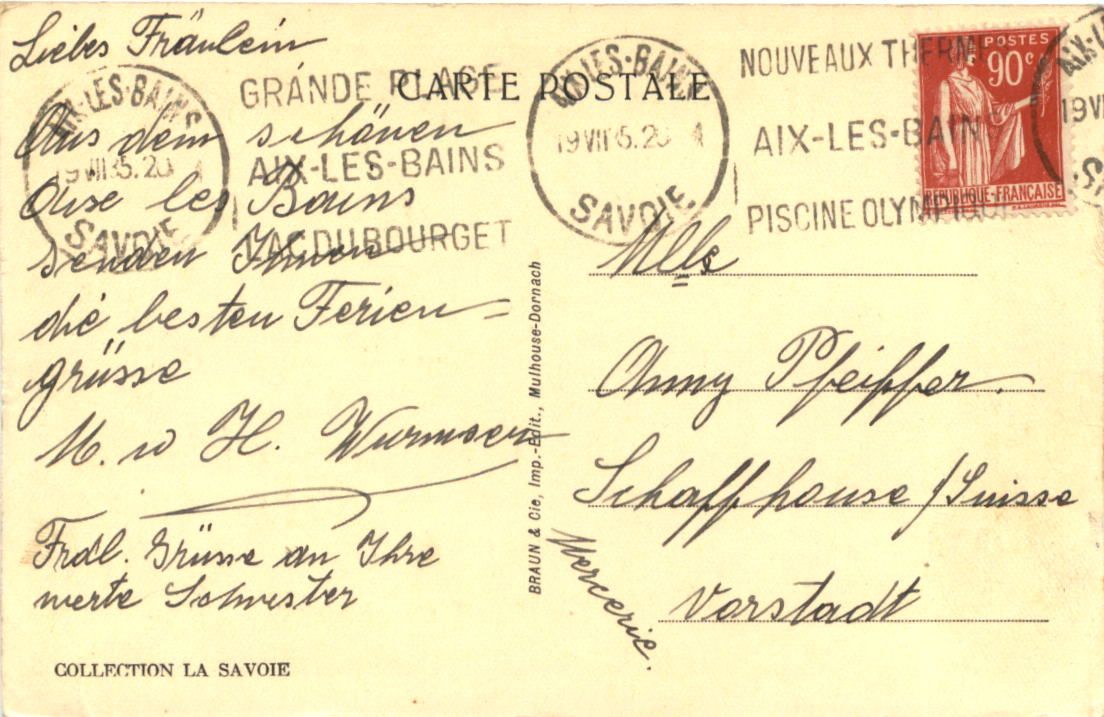 Liebes Fräulein
Aus dem schönen
Aise les Bains
senden Ihnen
die besten Ferien=
grüsse
M. u H. Wurmser
Frdl. Grüsse an Ihre
werte Schwester
COLLECTION LA SAVOIE
CARTE POSTALE
AIX-LES-BAINS
SAVOIE
GRANDE PLAGE
AIX-LES-BAINS
LAC DU BOURGET
AIX-LES-BAINS
SAVOIE
NOUVEAUX THERM
AIX-LES-BAIN
PISCINE OLYMPIQU
POSTES
90c
REPUBLIQUE-FRANÇAISE
19VI
BRAUN & Cie, Imp.-Edit., Mulhouse-Dornach
Mlle
Anny Pfeiffer.
Schaffhouse /Suisse
Mercerie.
Vorstadt